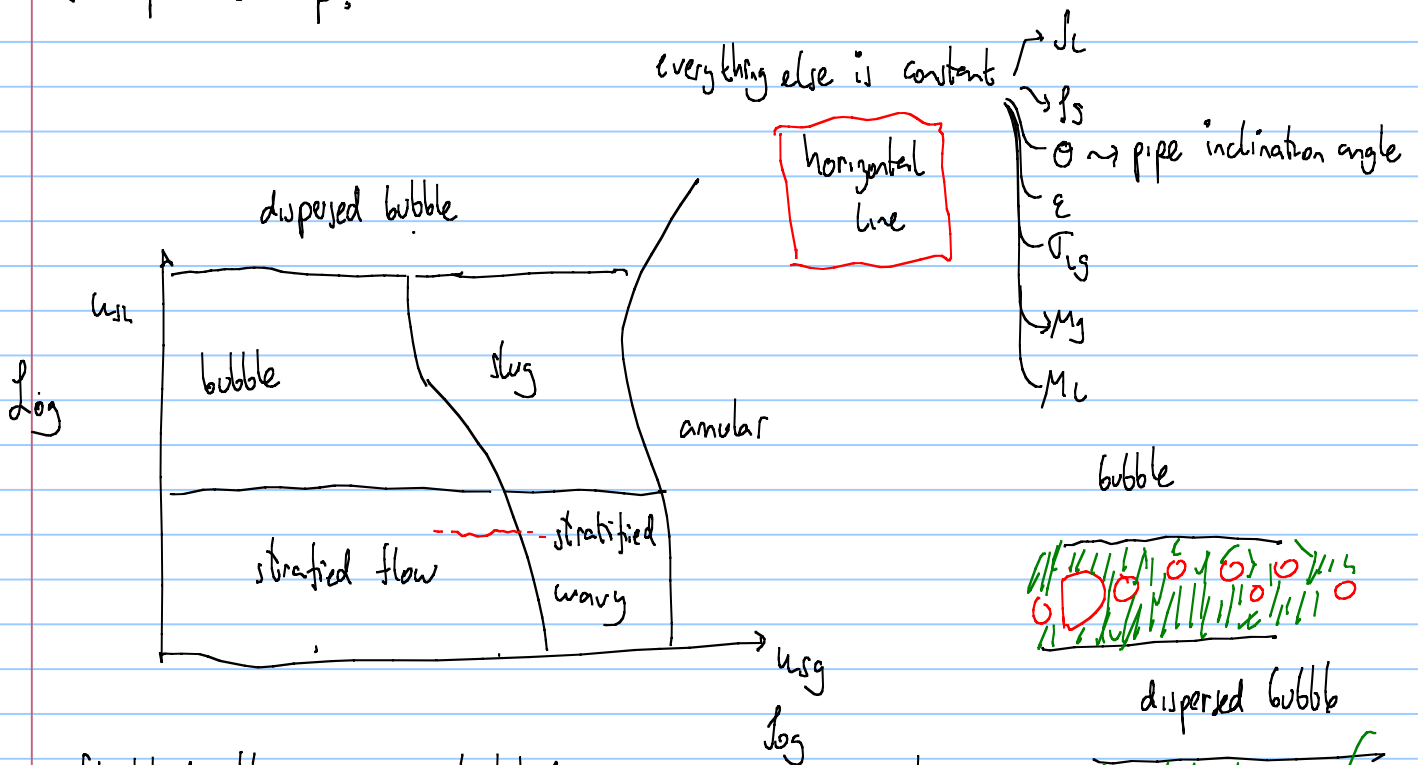 everything else is constant
ρL
ρg
θ ~> pipe inclination angle
ε
σLg
μg
μL
horizontal
line
dispersed bubble
usL
Log
bubble
slug
anular
strafied flow
stratified
wavy
usg
log
bubble
dispersed bubble